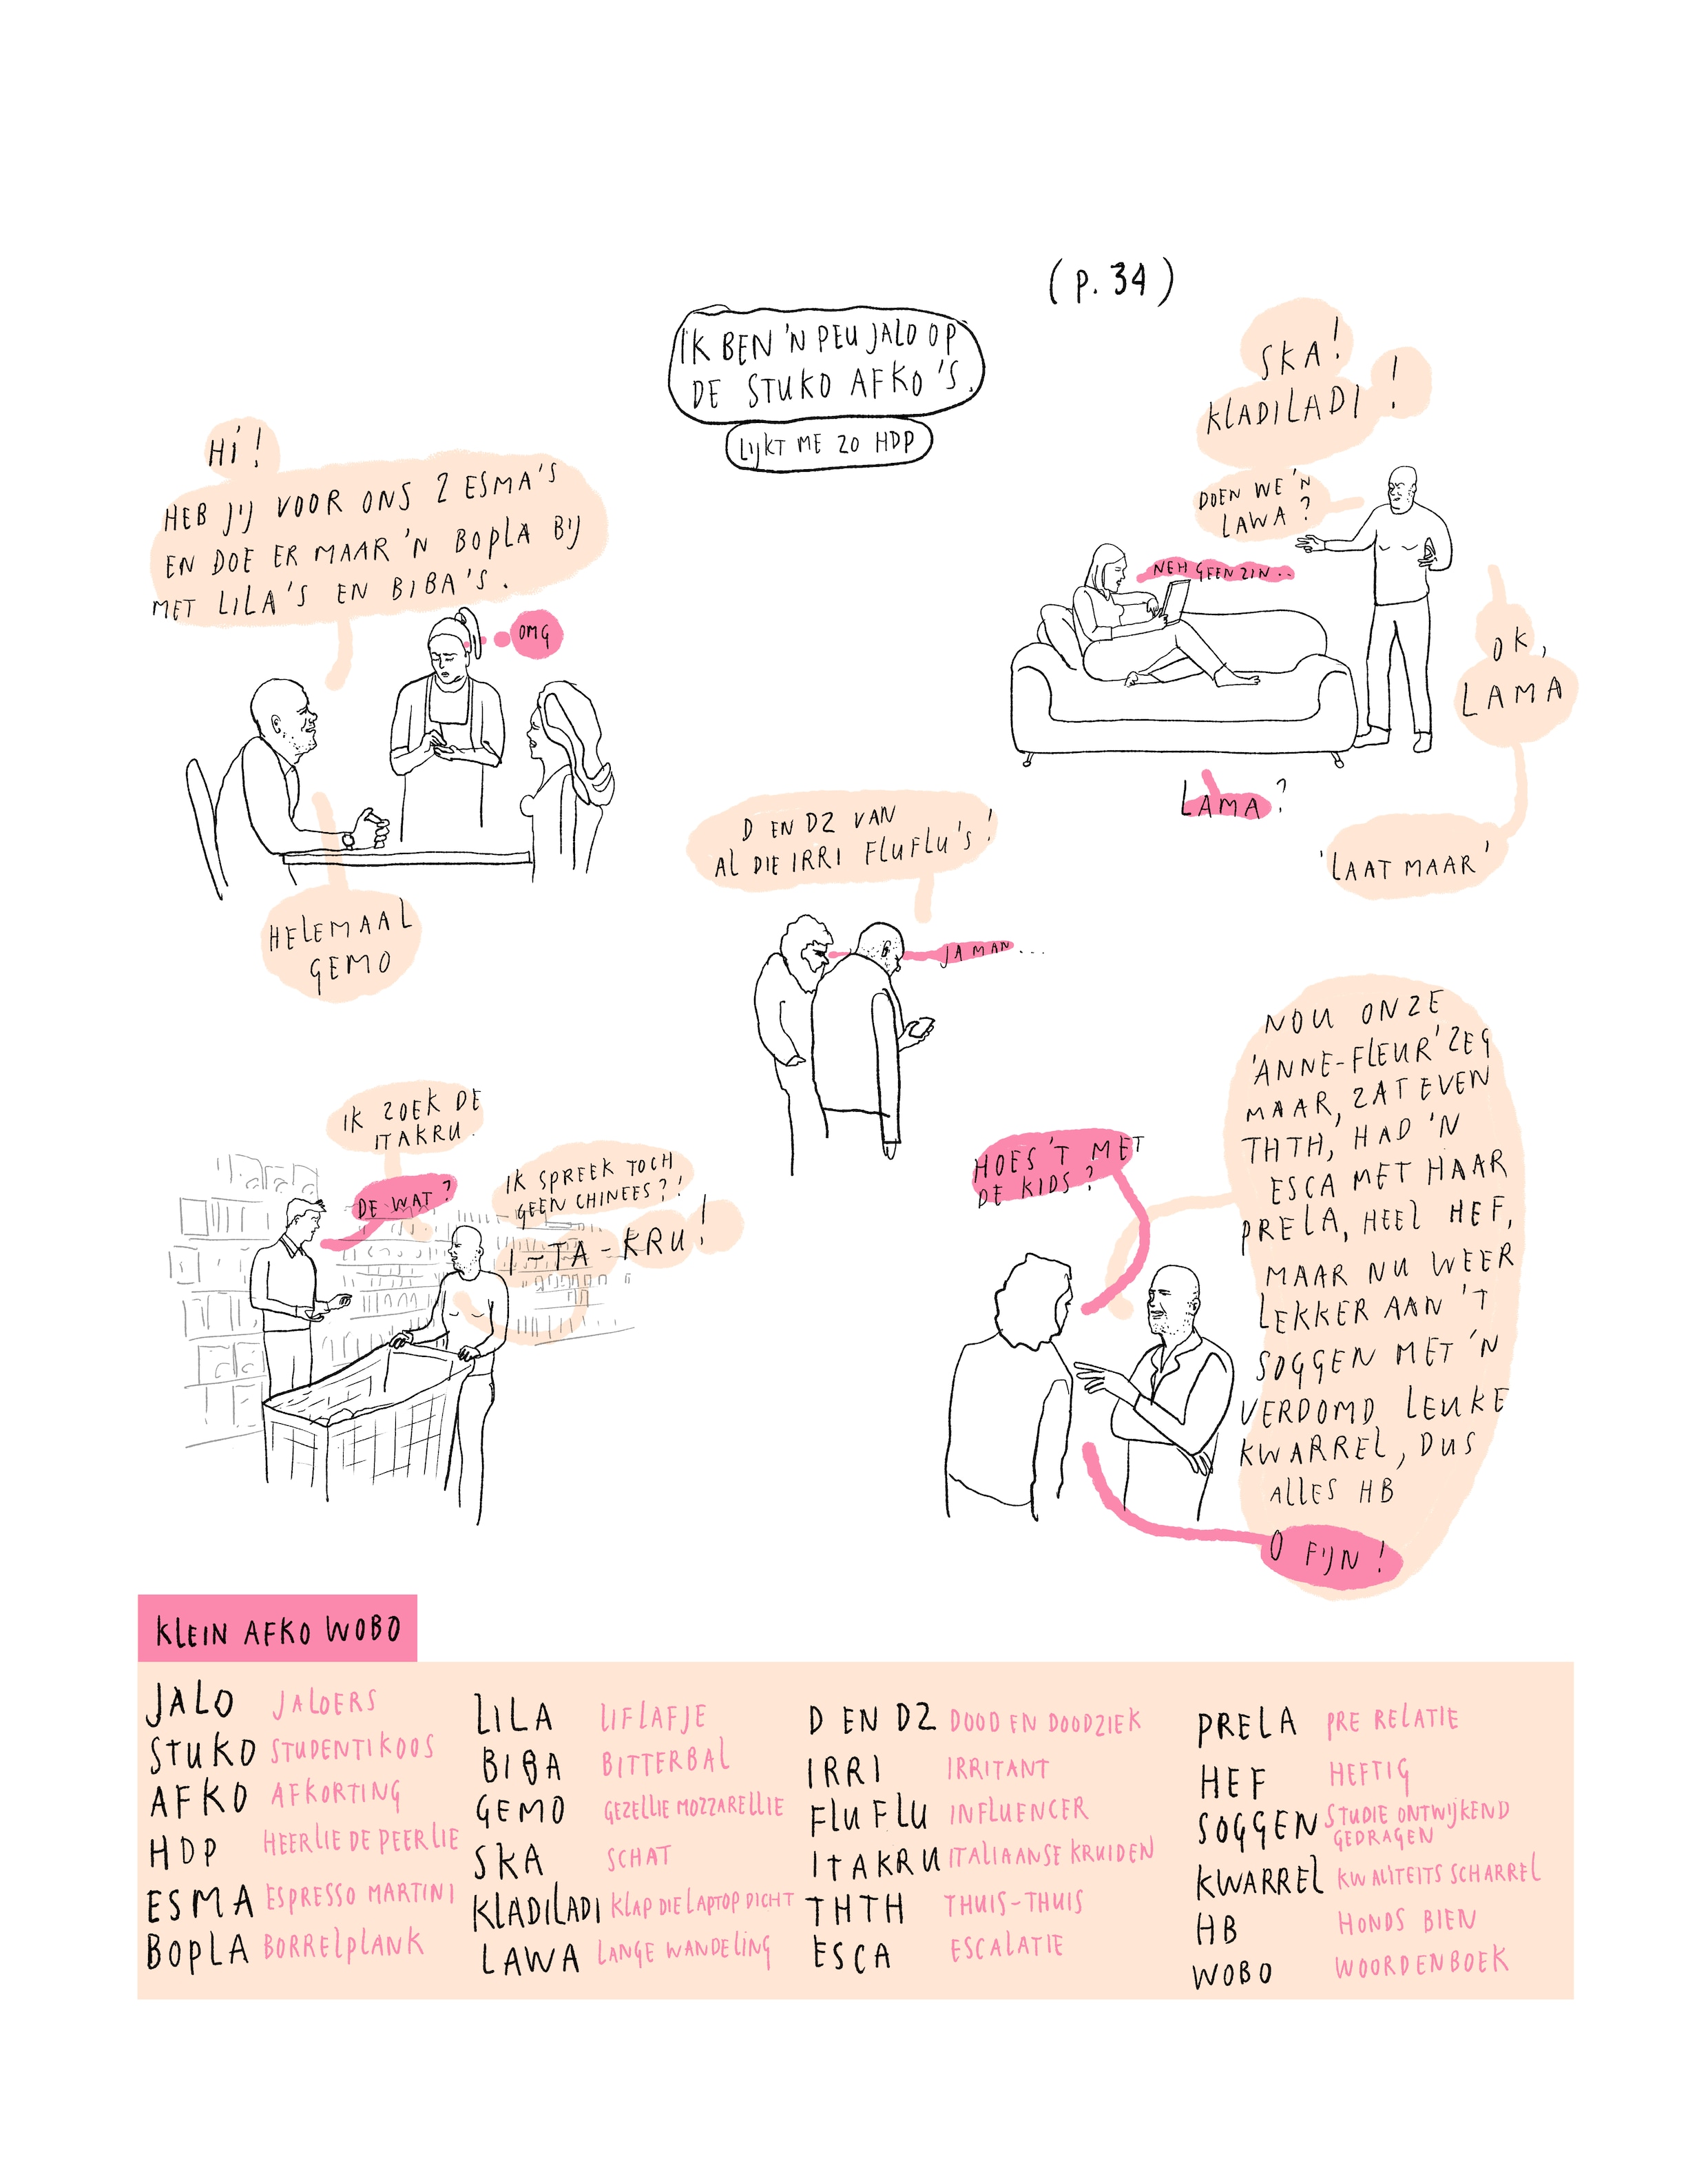 (P. 34)
IK BEN 'N PEU JALO OP
DE STUKO AFKO'S.
LIJKT ME ZO HDP
HI!
HEB JIJ VOOR ONS 2 ESMA'S
EN DOE ER MAAR 'N BOPLA BIJ
MET LILA'S EN BIBA'S.
OMG
HELEMAAL
GEMO
SKA!
KLADILADI!
DOEN WE 'N
LAWA?
NEH GEEN ZIN..
OK,
LAMA
LAMA?
'LAAT MAAR'
D EN DZ VAN
AL DIE IRRI FLUFLU'S!
JA MAN...
IK ZOEK DE
ITAKRU.
DE WAT?
IK SPREEK TOCH
GEEN CHINEES?!
I-TA-KRU!
HOES'T MET
DE KIDS?
NOU ONZE
'ANNE-FLEUR' ZEG
MAAR, ZAT EVEN
THTH, HAD 'N
ESCA MET HAAR
PRELA, HEEL HEF,
MAAR NU WEER
LEKKER AAN 'T
SOGGEN MET 'N
VERDOMD LEUKE
KWARREL, DUS
ALLES HB
O FIJN!
KLEIN AFKO WOBO
JALO JALOERS
STUKO STUDENTIKOOS
AFKO AFKORTING
HDP HEERLIE DE PEERLIE
ESMA ESPRESSO MARTINI
BOPLA BORRELPLANK
LILA LIFLAFJE
BIBA BITTERBAL
GEMO GEZELLIE MOZZARELLIE
SKA SCHAT
KLADILADI KLAP DIE LAPTOP DICHT
LAWA LANGE WANDELING
D EN DZ DOOD EN DOODZIEK
IRRI IRRITANT
FLUFLU INFLUENCER
ITAKRU ITALIAANSE KRUIDEN
THTH THUIS-THUIS
ESCA ESCALATIE
PRELA PRE RELATIE
HEF HEFTIG
SOGGEN STUDIE ONTWIJKEND
GEDRAGEN
KWARREL KWALITEITS SCHARREL
HB HONDS BIEN
WOBO WOORDENBOEK